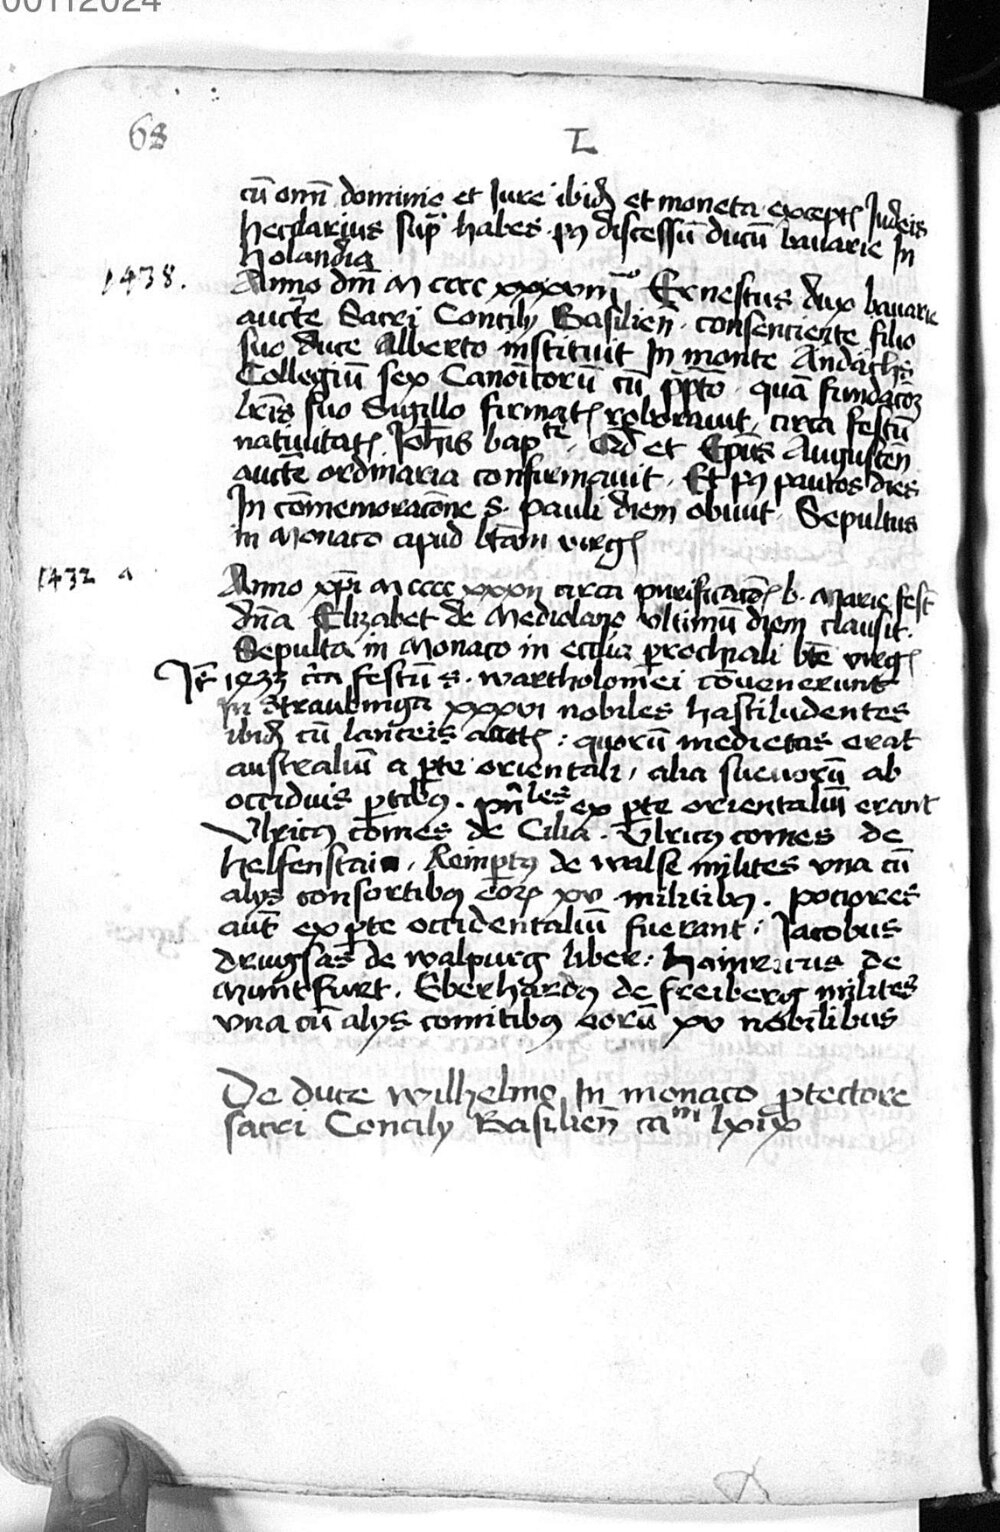 00112024
68
L
cū om̄i dominio et Jure ibid̄ et moneta exceptꝭ Judeis
hec clarius sup̄ habes pꝰ discessū ducū bavarie In
holandia
1438. Anno dm̄ M cccc xxxviij° Ernestus dux bavarie
auctē Sacri Concilij Basilien̄ consenciente filio
suo duce Alberto instituit In monte Andachs
Collegiū sex Canoicorū cū p̄pto quā fundacōꝫ
lrīs suo Sigillo firmatꝭ roboravit circa festū
nativitatꝭ Joh̄is bap^te. Qd̄ et Ep̄us Augusten̄
auctē ordinaria confirmavit. Et pꝰ paucos dies
In cōmemoracōne S. pauli diem obiit. Sepultus
in Monaco apud btām virgꝭ
1432 a Anno xp̄i M cccc xxxij circa purificacōꝭ b. Marie fest̄
dn̄a Elizabet de Mediolano ultimū diem clausit.
Sepulta in Monaco in ecclīa p̄rochiali btē virgꝭ
It̄ 1933 c̄ca festū s. wartholomei cōvenerunt
in Straubinga xxxvi nobiles hastiludentes
ibid̄ cū lanceis : quorū medietas erat
australiū a p̄te orientali, alia suevorū ab
occiduis p̄tibꝰ. pn̄^les ex p̄te orientaliū erant
Ulricꝰ cōmes de Cilia. Ulricꝰ comes de
helfenstain. Reimp̄tꝰ de walse milites una cū
alijs consortibꝰ eorꝝ xv militibꝰ. pociores
aut̄ ex p̄te occidentaliū fuerant: Jacobus
drugsäs de walpurg liber: hainricus de
Muntfurt. Eberhardꝰ de freiberg milites
una cū alijs comitibꝰ eorū xv nobilibus
De duce wilhelmo In monaco p̄tectore
sacri Concilij Basilien̄ ca^m lxix